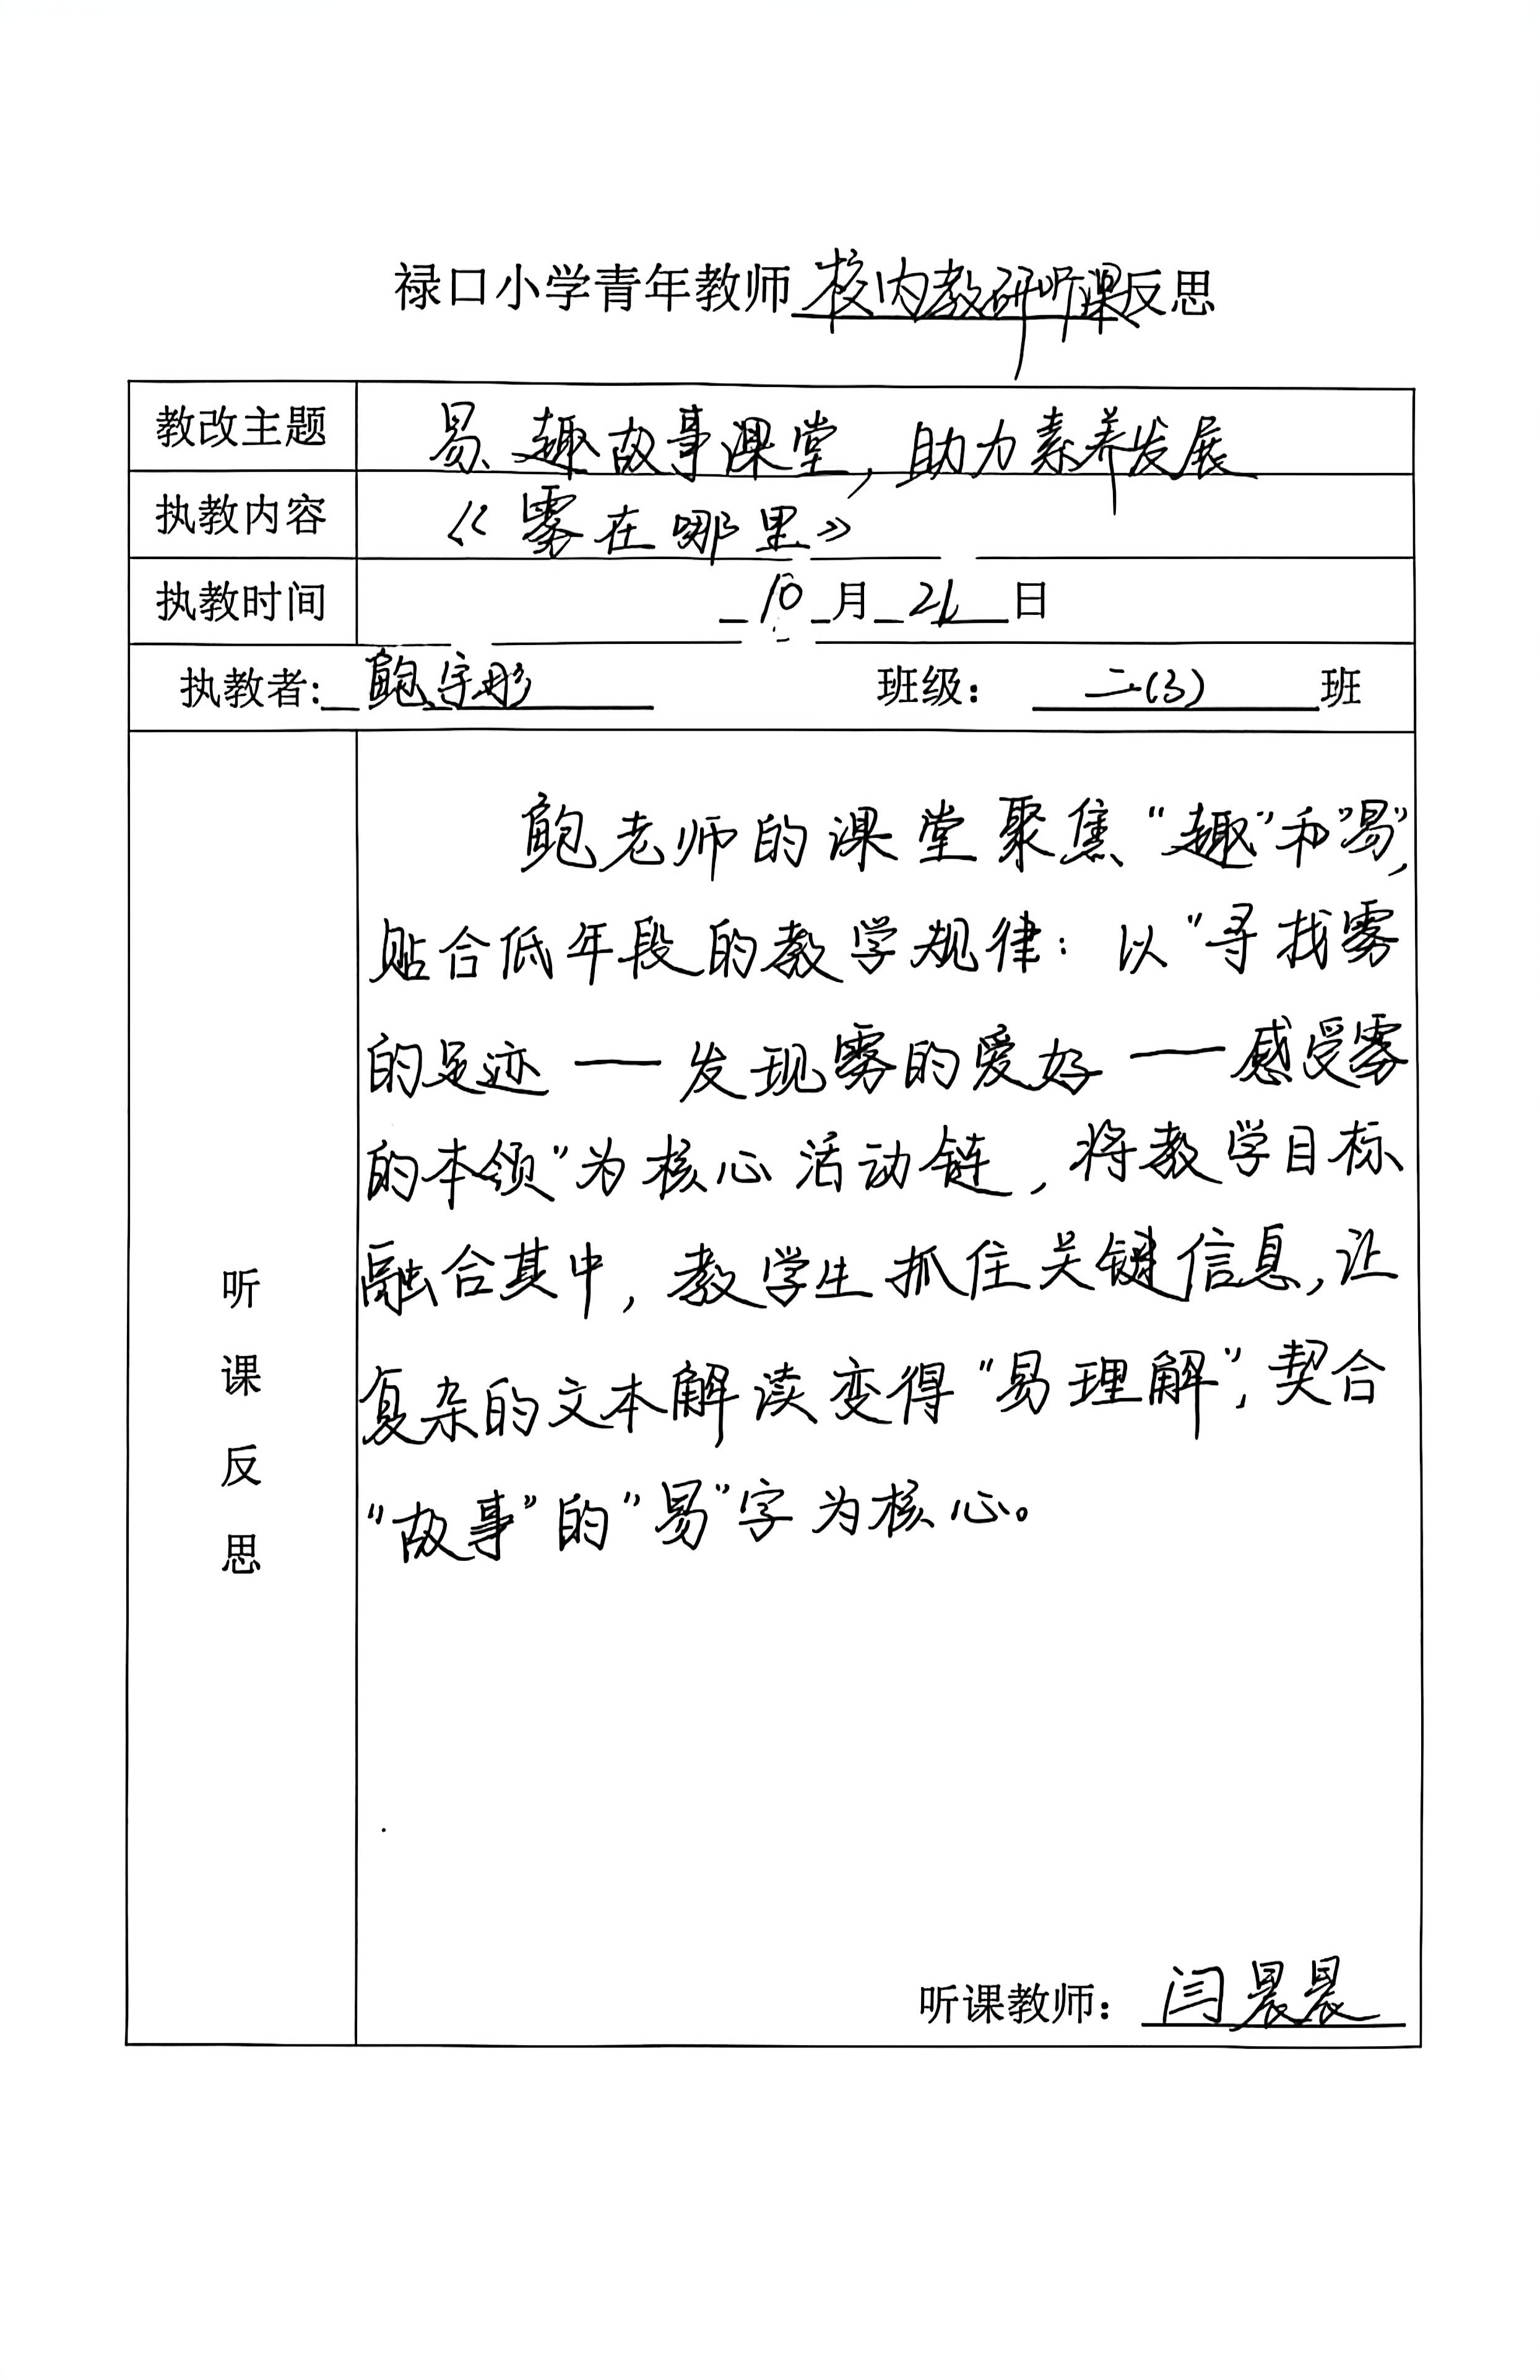 禄口小学青年教师校内教研听课反思
教改主题 易、趣故事课堂，助力素养发展
执教内容 《雾在哪里》
执教时间 10月21日
执教者：鲍宇彤 班级：二(3)班
听课反思
鲍老师的课堂聚焦“趣”和“易”，
贴合低年段的教学规律：以“寻找雾
的足迹——发现雾的爱好——感受雾
的本领”为核心活动链，将教学目标
融合其中，教学生抓住关键信息，让
复杂的文本解读变得“易理解”，契合
“故事”的“易”字为核心。
听课教师：闫晨晨